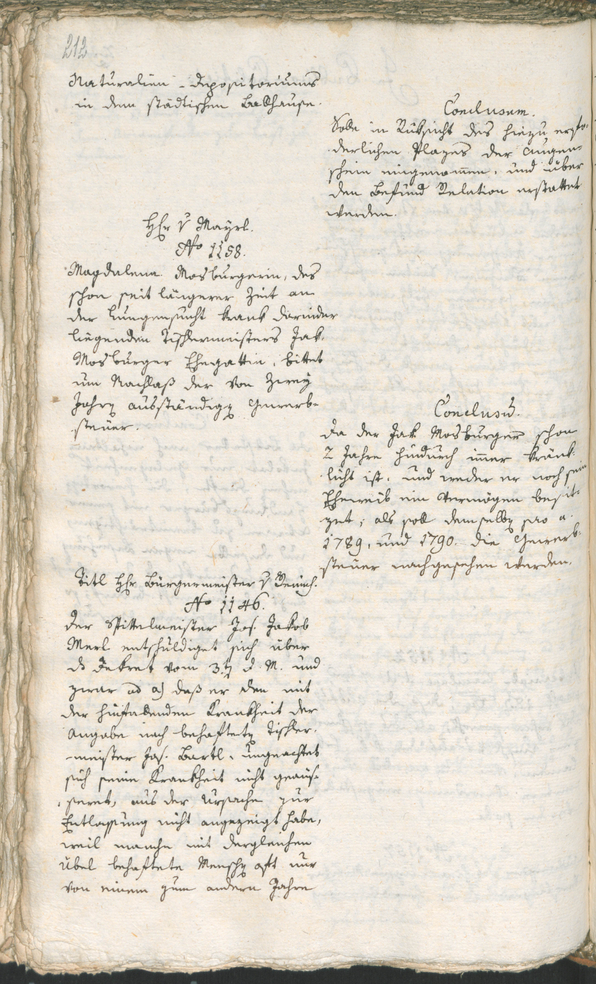 212
Naturalien-Depositoriums
in dem städtischen Backhause.
Conclusum.
Solle in Rüksicht des hiezu erfo-
derlichen Plazes der Augen-
schein eingenommen, und über
den Befund Relation erstattet
werden.
Hhr v Mayrl.
No 1158.
Magdalena Mosburgerin, des
schon seit längerer Zeit an
der Lungensucht krank darnieder
liegenden Tischlermeisters Jak.
Mosburger Ehegattin, bittet
um Nachlaß der von zwey
Jahren ausständigen Gewerb-
steuer.
Conclusum.
Da der Jak Mosburger schon
2 Jahre hindurch immer kränk-
licht ist, und weder er noch sein
Eheweib ein Vermögen besit-
zet; als soll demselben pro a
1789, und 1790 die Gewerb-
steuer nachgesehen werden.
Titl Hhr Bürgermeister v
No 1146.
Der Spittelmeister Jos. Jakob
Merl entschuldiget sich über
das Dekret vom 3ten d. M. und
zwar ad a) daß er den mit
der hinfallenden Krankheit der
Angabe nach behafteten Tischler-
meister Jos. Bartl, ungeachtet
sich seine Krankheit nicht geäus-
seret, aus der Ursache zur
Entlassung nicht angezeigt habe,
weil manche mit dergleichen
Übel behaftete Menschen oft nur
von einem zum andern Jahre